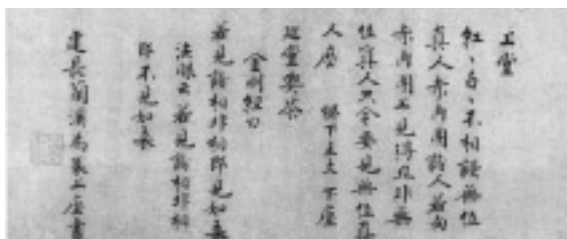 上堂
紅々白々不相謾無位
真人赤肉團諸人若向
赤肉團上見得且非無
位真人只今要見無位真
人麼 下主丈下座
巡堂喫茶
金剛経曰
若見諸相非相即見如来
法眼云若見諸相非相
即不見如来
建長蘭溪為 上座書